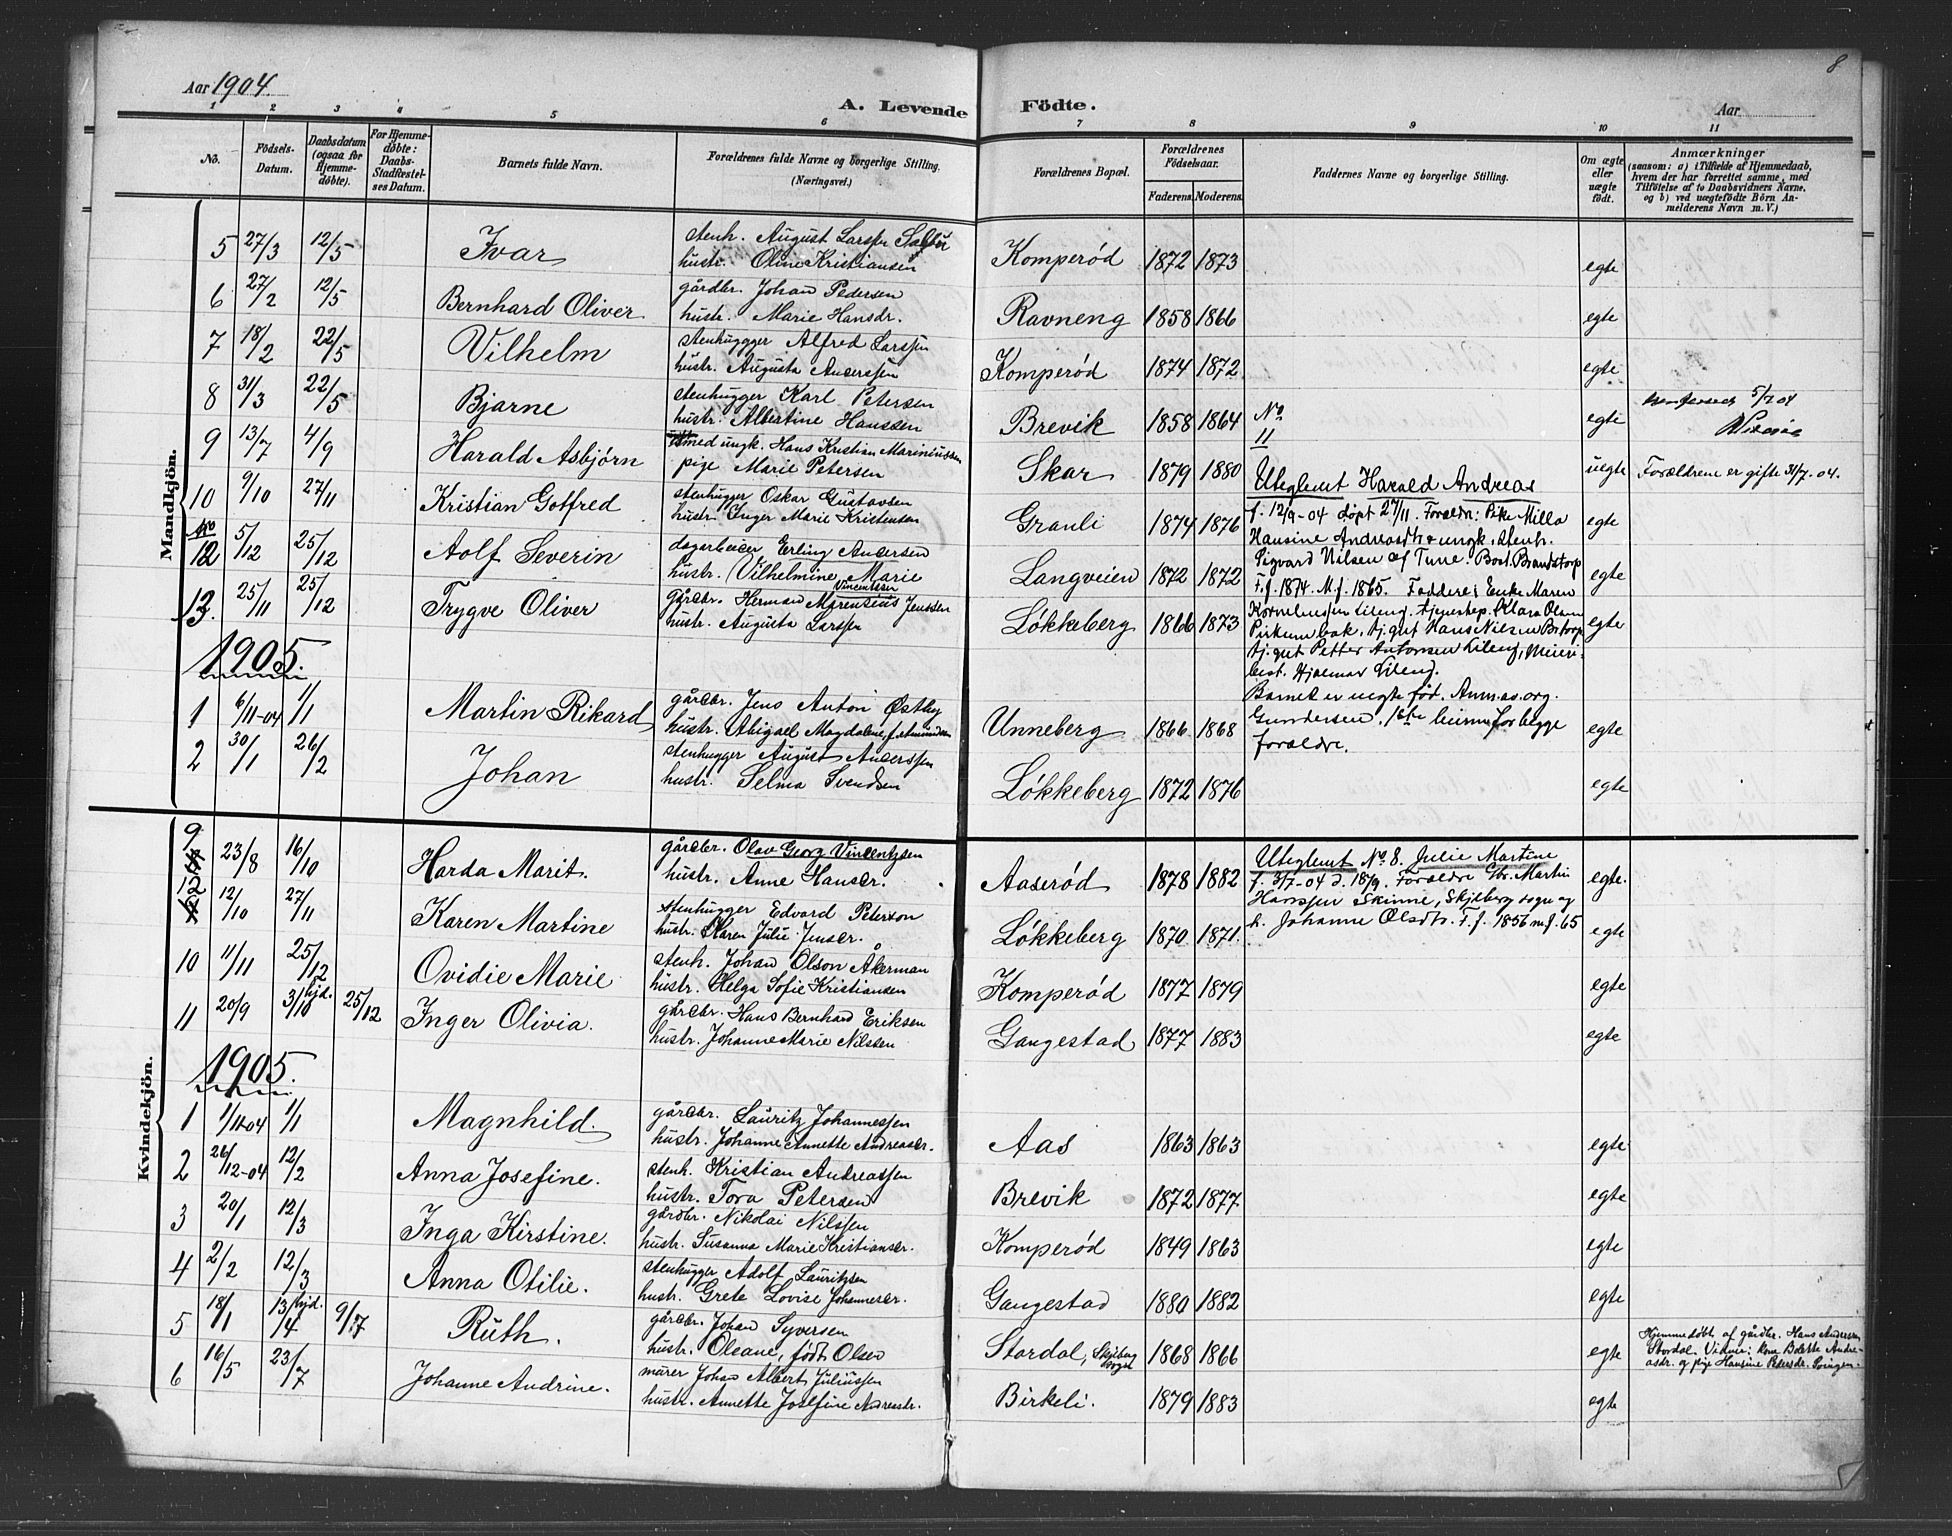 8
Aar 1904.
A. Levende Födte.
Aar
1 2 3 4 5 6 7 8 9 10 11
No.
Födsels-Datum.
Daabsdatum (ogsaa for Hjemme-döbte).
For Hjemme-döbte: Daabs-Stadfæstel-ses Datum.
Barnets fulde Navn.
Forældrenes fulde Navne og borgerlige Stilling. (Næringsvei.)
Forældrenes Bopæl.
Forældrenes Födselsaar.
Faderens. Moderens.
Faddernes Navne og borgerlige Stilling.
Om ægte eller uægte födt.
Anmærkninger
(saasom: a) i Tilfælde af Hjemmedaab,
hvem der har forrettet samme, med
Tilföielse af to Daabsvidners Navne.
og b) ved uægtefödte Börn An-
melderens Navn m. V.)
Mandkjön.
5 27/3 12/5 Ivar stenh. August Larssen
hustr. Oline Kristiansen Komperød 1872 1873 egte
6 27/2 12/5 Bernhard Oliver gårdbr. Johan Pedersen
hustr. Marie Hansdr. Ravneng 1858 1866 egte
7 18/2 22/5 Vilhelm stenhugger Alfred Larssen
hustr. Augusta Anderssen Komperød 1874 1872 egte
8 31/3 22/5 Bjarne stenhugger Karl Petersen
hustr. Albertine Hanssen Brevik 1858 1864 egte 5/7 04
9 13/7 4/9 Harald Asbjørn smed ungk. Hans Kristian Mariniussen
pige Marie Petersen Skar 1879 1880 uegte Forældrene er gifte 31/7. 04.
10 9/10 27/11 Kristian Gotfred stenhugger Oskar Gustavsen
hustr. Inger Marie Kristensen Granli 1874 1876 egte
No 12 5/12 25/12 Adolf Severin dagarbeider Erling Andersen
hustr. Vilhelmine Marie Vincentsen Langveien 1872 1872 egte
13. 25/11 25/12 Trygve Oliver gårdbr. Herman Marensius Jenssen
hustr. Augusta Larssen Løkkeberg 1866 1873 egte
No 11
Uteglemt Harald Andreas
f. 12/9-04 døpt 27/11. Foræld: Pike Milla
Hansine Andreasdtr & ungk. stenh.
Sigvard Nilsen af Tune. Bost. Brandstorp
F. f. 1874. M. f. 1865. Faddere: Enke Maren
Korneliussen Lileng. tjenestep. Klara Olsen
Pirkumbak, tj. gut Hans Nilsen
tj. gut Petter Antonsen Lileng, Meieri-
best. Hjalmar Lilend.
Barnet er uegte fød. Anm. as. org.
Gundersen. 1ste barn for begge
forældre.
1905.
1 6/11-04 1/1 Martin Rikard gårdbr. Jens Anton Østby
hustr. Abigael Magdalene, f. Unneberg 1866 1868 egte
2 30/1 26/2 Johan stenhugger August Anderssen
hustr. Selma Svendsen Løkkeberg 1872 1876 egte
Kvindekjön.
9 23/8 16/10 Harda Marit. gårdbr. Olav Georg Vincentzen
hustr. Anne Hansdr. Aaserød 1878 1882 egte.
12/10 27/11 Karen Martine stenhugger Edvard Peterson
hustr. Karen Julie Jensdr. Løkkeberg 1870 1871. egte
Uteglemt No 8. Julie Martine
f. 3/7-04 d. 18/9. Forældre Gbr. Martin
Hanssen Skinne, Skjeberg sogn og
h. Johanne Olsdtr. F. f. 1856 m. f. 65
10 11/11 25/12 Ovidie Marie stenh. Johan Olson Åkerman
hustr. Helga Sofie Kristiansen Komperød 1877 1879 egte
11 20/9 3/10 hjd. 25/12 Inger Olivia. gårdbr. Hans Bernhard Eriksen
hustr. Johanne Marie Nilssen Gangestad 1877 1883 egte
1905.
1 1/11-04 1/1 Magnhild. gårdbr. Lauritz Johannessen
hustr. Johanne Annette Andreasdr. Aas 1863 1863 egte
2 26/12-04 12/2 Anna Josefine. stenh. Kristian Andreassen
hustr. Tora Petersen Brevik 1872 1877 egte
3 20/1 12/3 Inga Kirstine. gårdbr. Nikolai Nilssen
hustr. Susanna Marie Kristiansdr. Komperød 1849 1863 egte
4 2/2 12/3 Anna Otilie. stenhugger Adolf Lauritzsen
hustr. Grete Lovise Johannesdr. Gangestad 1880 1882 egte
5 18/1 13/4 hjd. 9/7 Ruth. gårdbr. Johan Syversen
hustr. Oleane, født Olsen Stordal, Skjeberg sogn 1868 1866 egte Hjemmedøbt af gårdbr. Hans Andersen
Stordal. Vidner: kone Bolette Andre-
asdr. og pige Hansine Pedersdr.
6 16/5 23/7 Johanne Andrine. murer Johan Albert Juliussen
hustr. Annette Josefine Andreasdr. Birkeli. 1879 1883 egte